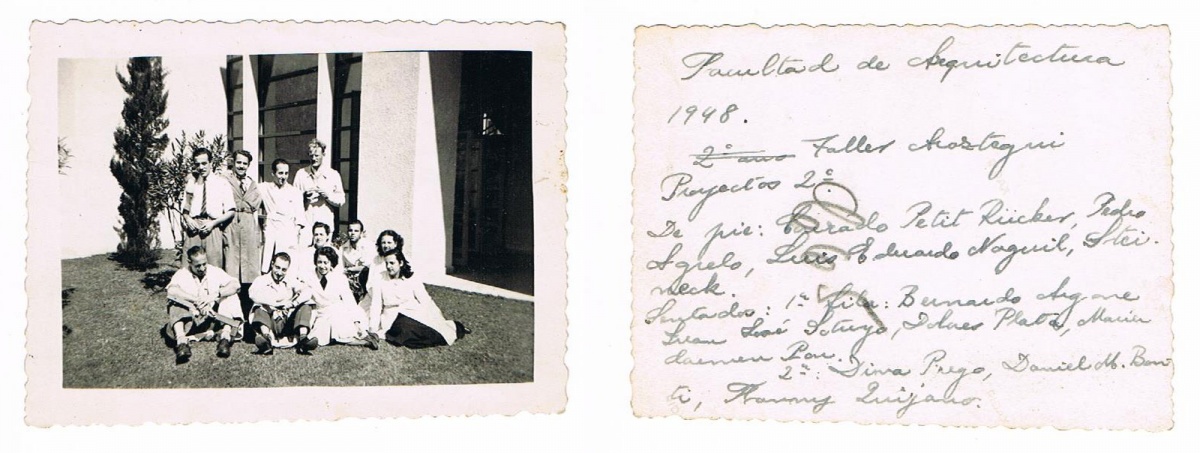 Facultad de Arquitectura
1948.
2º año Taller Aroztegui
Proyectos 2º.
De pie: Conrado Petit Rücker, Pedro
Agrelo, Luis Eduardo Naguil, Stei-
neck.
Sentados: 1ª fila: Bernardo
Juan José Dolores Plata, María
Carmen
2ª: Dima Prego, Daniel M. Bon-
ti, Nanny Quijano.